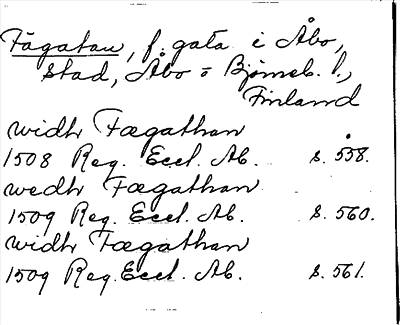 Fägatan, f. gata i Åbo,
stad, Åbo o Björneb. l.,
Finland
widh Fægathan
1508 Reg. Eccl. Ab. s. 558.
wedh Fægathan
1509 Reg. Eccl. Ab. s. 560.
widh Fægathan
1509 Reg. Eccl. Ab. s. 561.